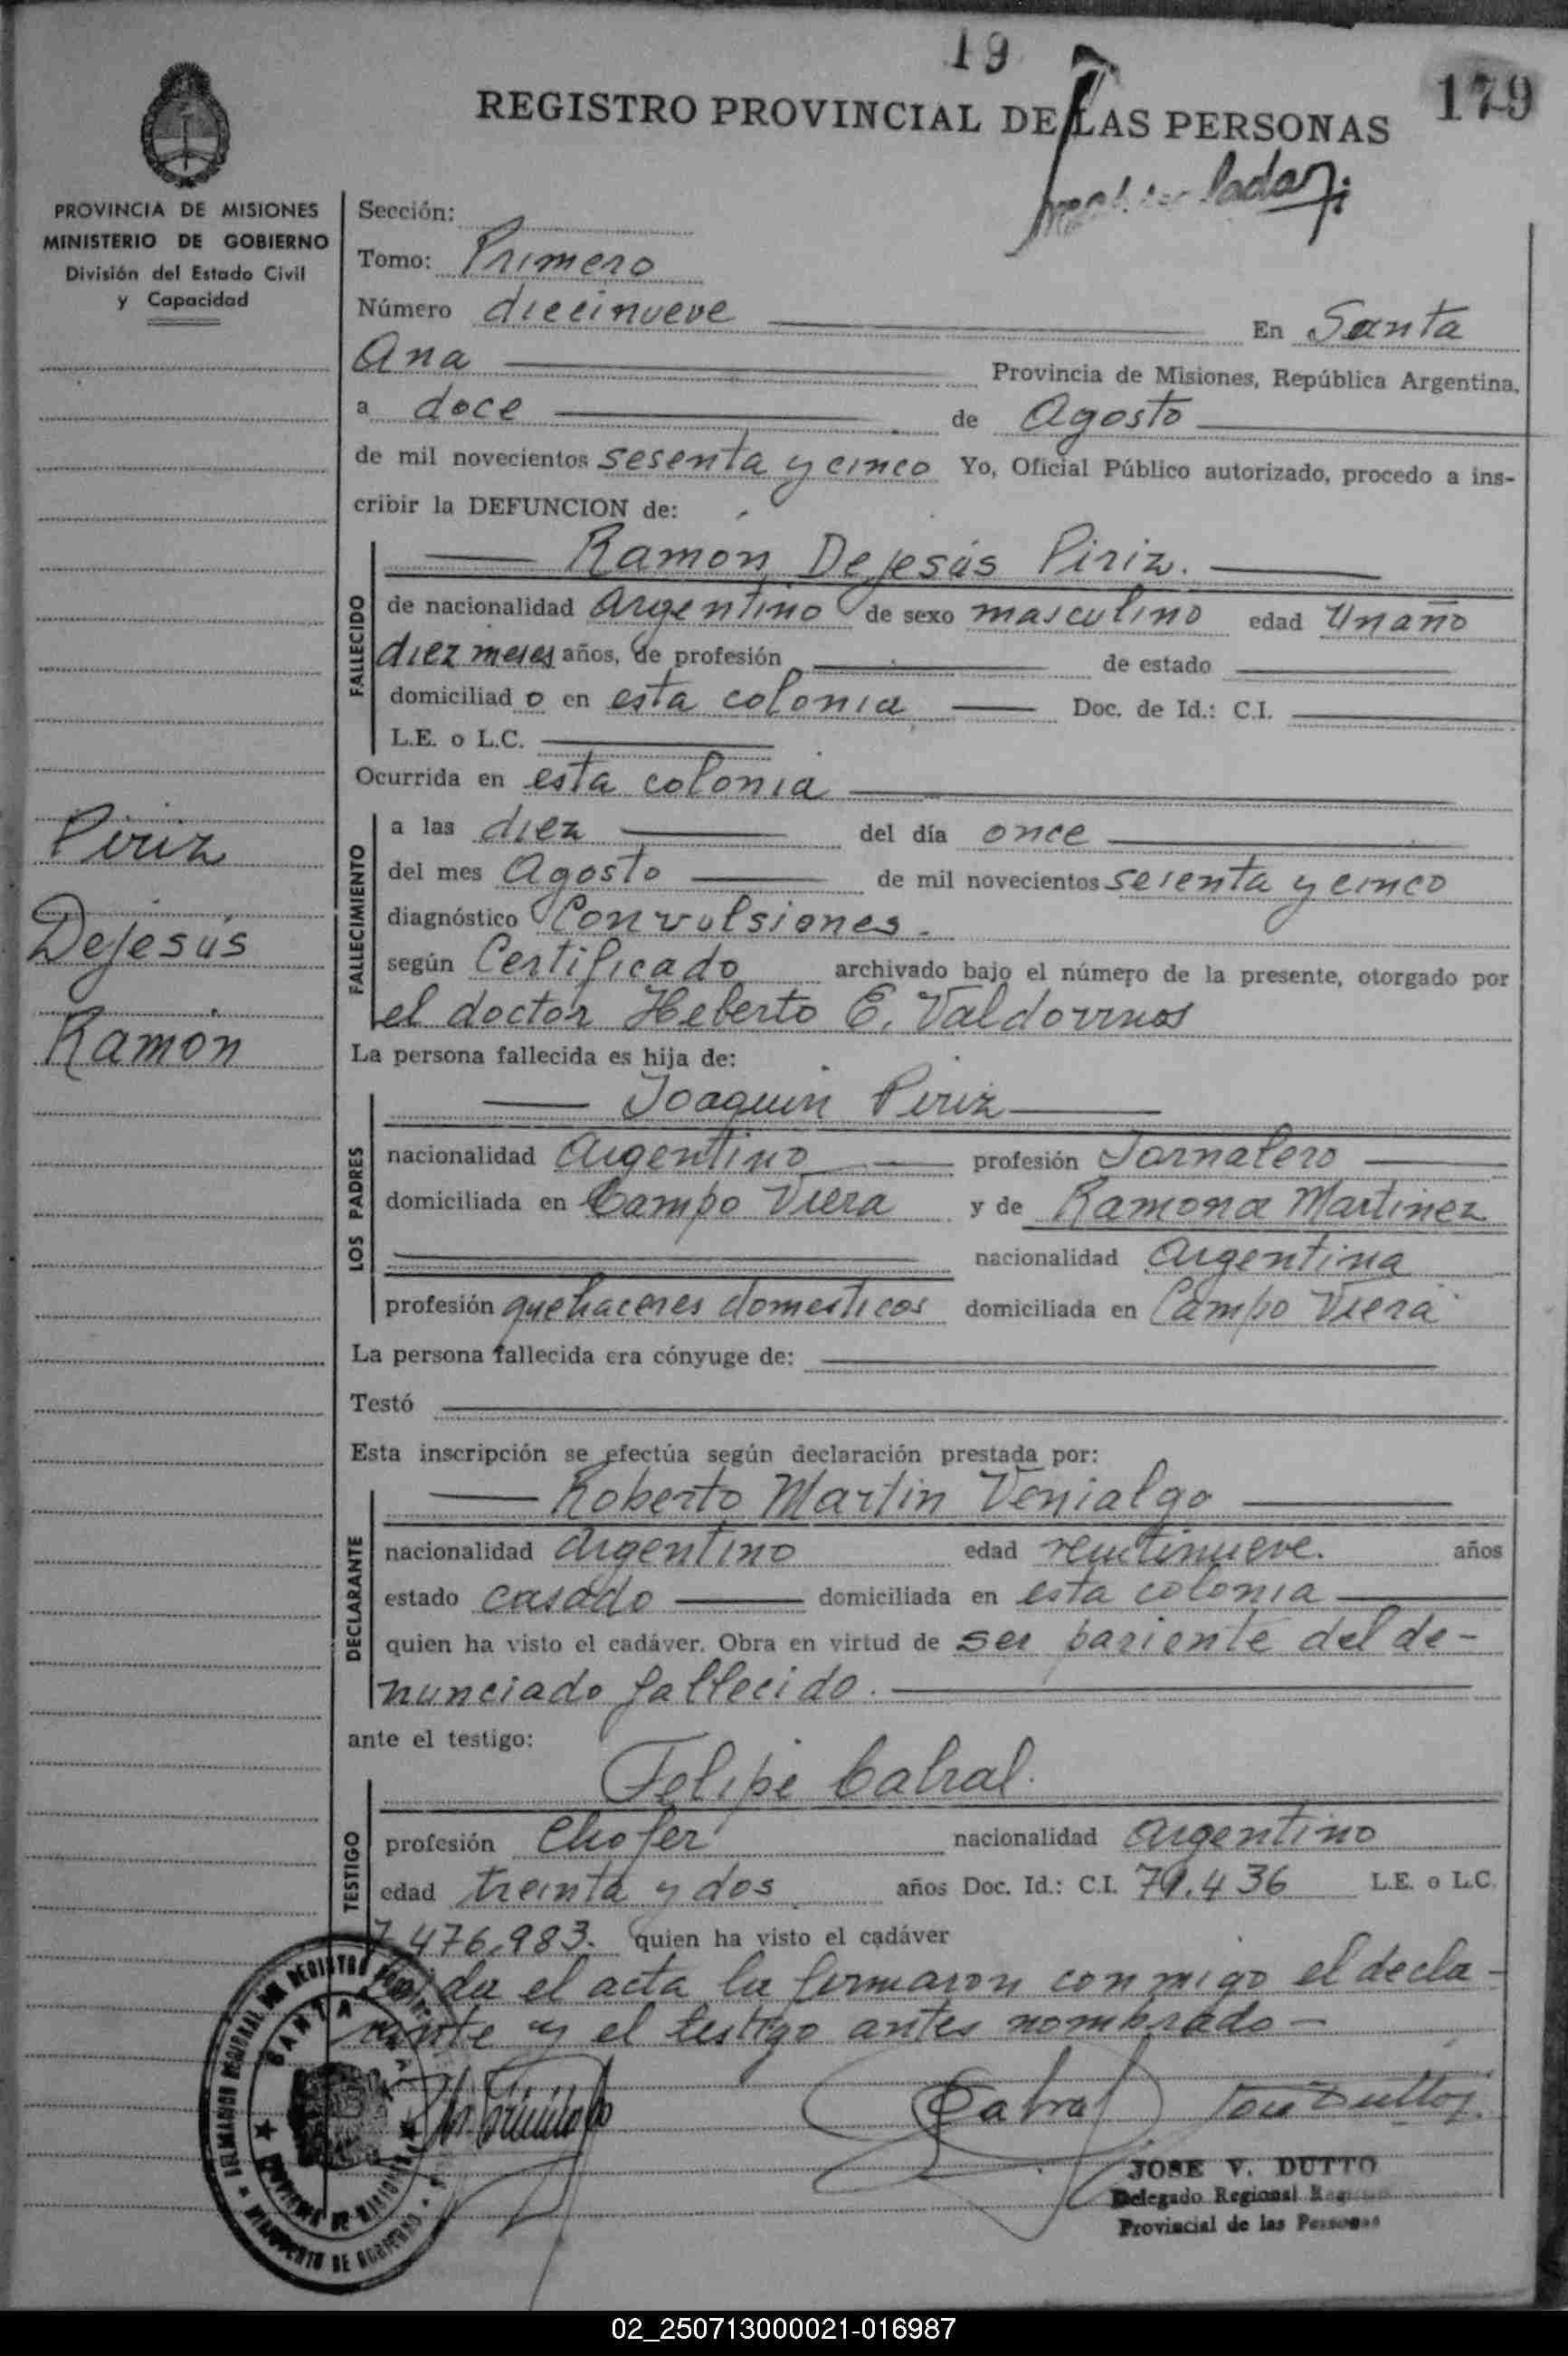 19
179
REGISTRO PROVINCIAL DE LAS PERSONAS
PROVINCIA DE MISIONES
MINISTERIO DE GOBIERNO
División del Estado Civil
y Capacidad
Sección:
Tomo: Primero
Número diecinueve En Santa
Ana Provincia de Misiones, República Argentina,
a doce de Agosto
de mil novecientos sesenta y cinco Yo, Oficial Público autorizado, procedo a ins-
cribir la DEFUNCION de:
FALLECIDO
Ramón Dejesús Piriz.
de nacionalidad Argentino de sexo masculino edad Un año
diez meses años, de profesión de estado
domiciliad o en esta colonia Doc. de Id.: C.I.
L.E. o L.C.
Ocurrida en esta colonia
FALLECIMIENTO
a las diez del día once
del mes Agosto de mil novecientos sesenta y cinco
diagnóstico Convulsiones.
según Certificado archivado bajo el número de la presente, otorgado por
el doctor Heberto E. Valdovinos
Piriz
Dejesús
Ramón
La persona fallecida es hija de:
LOS PADRES
Joaquin Piriz
nacionalidad Argentino profesión Jornalero
domiciliada en Campo Viera y de Ramona Martinez
nacionalidad Argentina
profesión quehaceres domesticos domiciliada en Campo Viera
La persona fallecida era cónyuge de:
Testó
Esta inscripción se efectúa según declaración prestada por:
DECLARANTE
Roberto Martin Venialgo
nacionalidad Argentino edad veintinueve. años
estado casado domiciliada en esta colonia
quien ha visto el cadáver. Obra en virtud de ser pariente del de-
nunciado fallecido.
ante el testigo:
TESTIGO
Felipe Cabral.
profesión Chofer nacionalidad Argentino
edad treinta y dos años Doc. Id.: C.I. 79.436 L.E. o L.C.
7.476.983. quien ha visto el cadáver
Leida el acta la firmaron conmigo el decla-
rante y el testigo antes nombrado-
SANTA ANA
PROVINCIA DE MISIONES
MINISTERIO DE GOBIERNO
Cabral
JOSE V. DUTTO
Delegado Regional
Provincial de las Personas
02_250713000021-016987